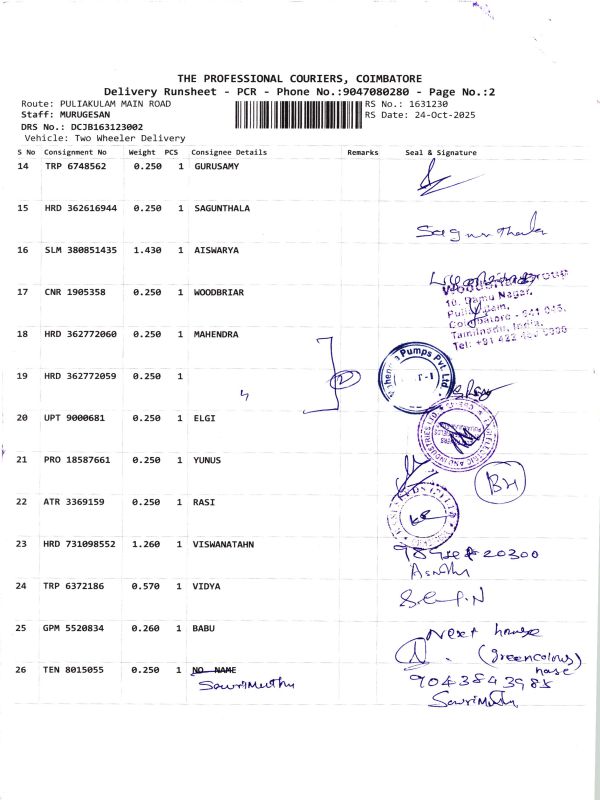 THE PROFESSIONAL COURIERS, COIMBATORE
Delivery Runsheet - PCR - Phone No.:9047080280 - Page No.:2
Route: PULIAKULAM MAIN ROAD RS No.: 1631230
Staff: MURUGESAN RS Date: 24-Oct-2025
DRS No.: DCJB163123002
Vehicle: Two Wheeler Delivery
S No Consignment No Weight PCS Consignee Details Remarks Seal & Signature
14 TRP 6748562 0.250 1 GURUSAMY
15 HRD 362616944 0.250 1 SAGUNTHALA
Sagunthala
16 SLM 380851435 1.430 1 AISWARYA
17 CNR 1905358 0.250 1 WOODBRIAR
Tamilnadu, India.
18 HRD 362772060 0.250 1 MAHENDRA
Pumps Pvt. Ltd.
19 HRD 362772059 0.250 1
2
20 UPT 9000681 0.250 1 ELGI
21 PRO 18587661 0.250 1 YUNUS
BH
22 ATR 3369159 0.250 1 RASI
23 HRD 731098552 1.260 1 VISWANATAHN
24 TRP 6372186 0.570 1 VIDYA
25 GPM 5520834 0.260 1 BABU
Next house
(greencolour)
26 TEN 8015055 0.250 1 NO NAME
9043843985
SowriMuthu
SowriMuthu